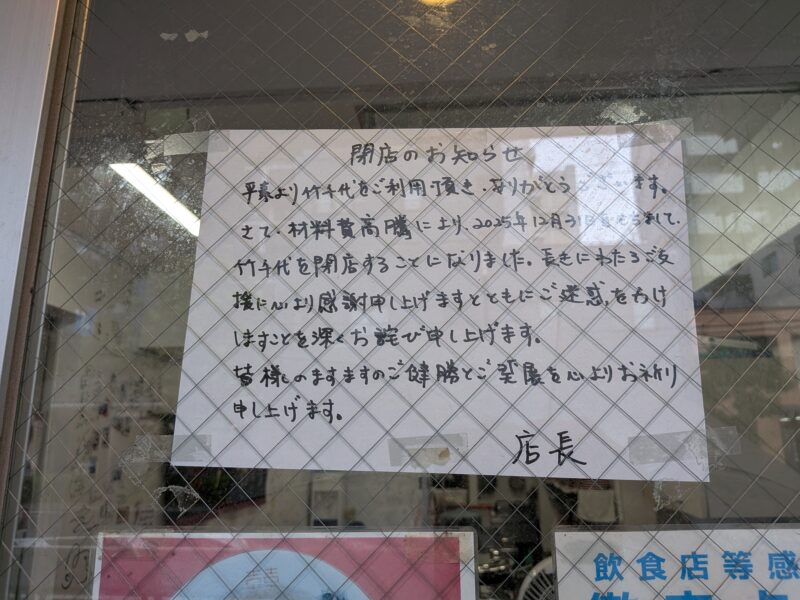 閉店のお知らせ
平素より竹千代をご利用頂き、ありがとうございます。
さて、材料費高騰により、2025年12月31日をもちまして、
竹千代を閉店することになりました。長きにわたるご支
援に心より感謝申し上げますとともにご迷惑をおかけ
しますことを深くお詫び申し上げます。
皆様しのますますのご健勝とご発展を心よりお祈り
申し上げます。
店長
飲食店等感